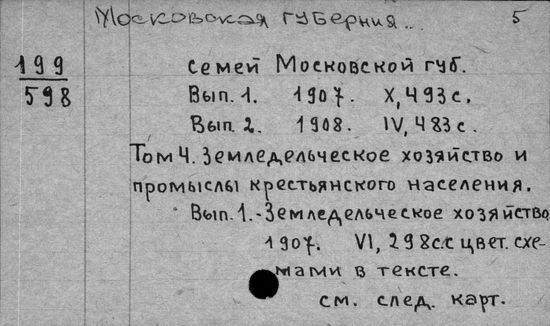 Московская губерния... 5
199 семей Московской губ.
598 Вып. 1. 1907. X, 493 с.
Вып. 2. 1908. IV, 483 с.
Том 4. Земледельческое хозяйство и
промыслы крестьянского населения.
Вып. 1.-Земледельческое хозяйство
1907. VI, 298с.с цвет. схе-
мами в тексте.
см. след. карт.